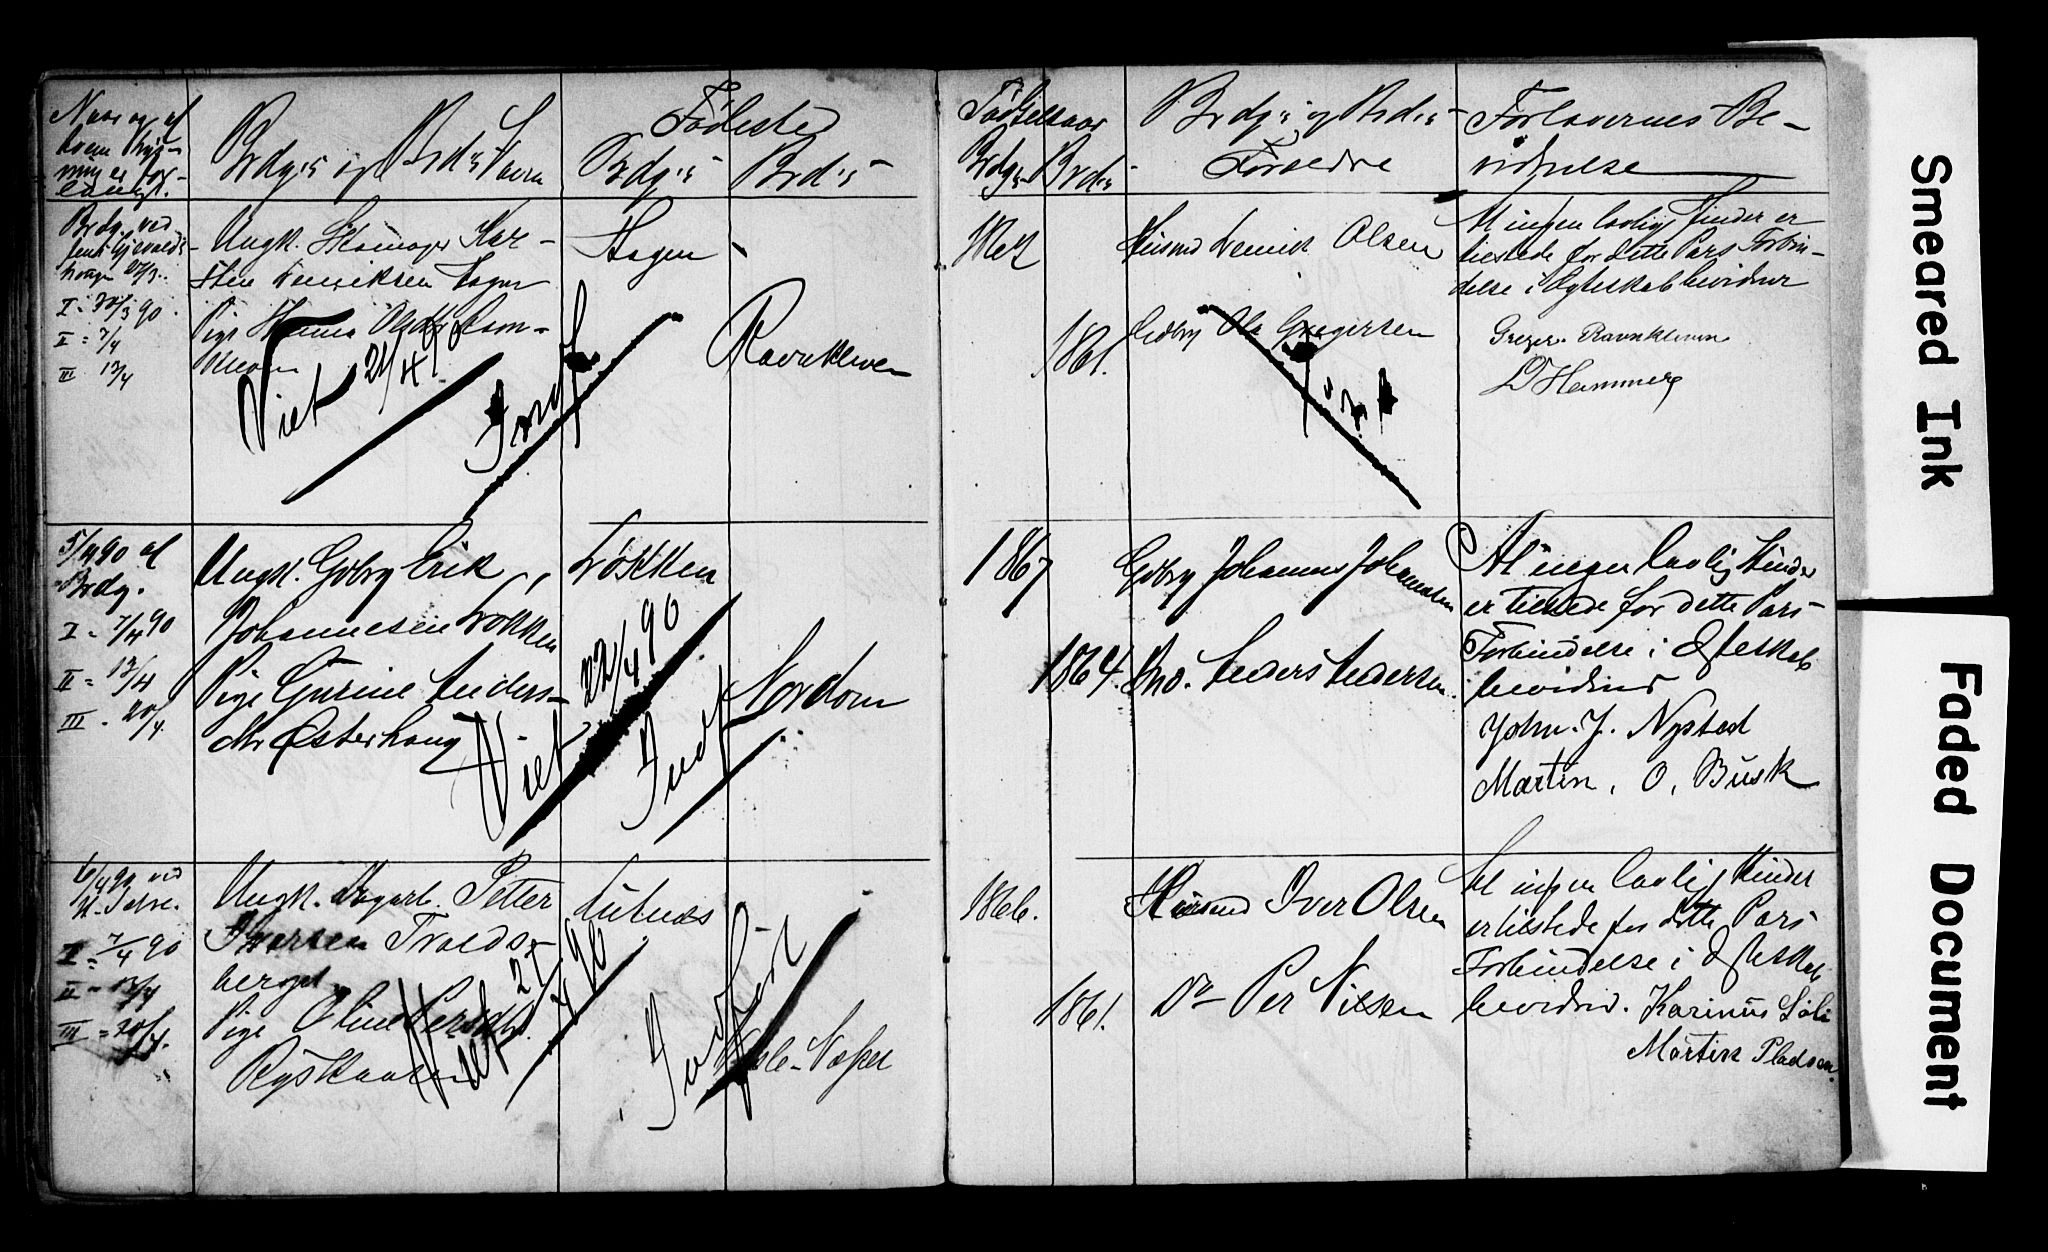 Naar og af
hvem Lys-
ning er for-
langt.
Brdg.s og Brd.s Navn
Fødested
Brdg.s Brd.s
Fødselsaar
Brdg.s Brd.s
Brdg.s og Brd.s
Forældre
Forlovernes Be-
vidnelse
Brdg. ved
27/3.
I = 30/3 90.
II = 7/4
III 13/4
Ungk. Skomager Kar-
sten Henriksen Hagen
Pige Olsdtr. Ravn-
kleven
Viet 21/4 90
Indf.
Hagen
Ravnkleven
Husmd Henrik Olsen
1861.
Gdbr. Ole Gregersen
At ingen lovlig Hinder er
tilstede for dette Pars Forbin-
delse i Ægteskab bevidner
Greger Ravnkleven
Hammer
5/4 90 af
Brdg.
I = 7/4 90
II = 13/4
III = 20/4.
Ungk. Gdbr. Erik
Johannesen Løkken
Pige Gurine Anders-
dtr Østerhaug
Viet 22/4 90
Indf.
Løkken
Nordom
1867
Gdbr. Johannes Johannesen
1864. Anders Andersen
At ingen lovlig Hinder
er tilstede for dette Pars
Forbindelse i Ægteskab
bevidner
John. J. Nysted
Martin. O. Busk
6/4 90 ved
I = 7/4 90
II = 13/4
III = 20/4.
Ungk. Dagarb. Petter
Iversen
berget
Pige Oline Persdtr.
Viet 27/4 90
Indført
1866.
Husmd Iver Olsen
1861. Do Per Nilsen
At ingen lovlig Hinder
er tilstede for dette Pars
Forbindelse i Ægteskab
bevidnes. Karinus Løli
Martin Pladsen.
Smeared Ink
Faded Document